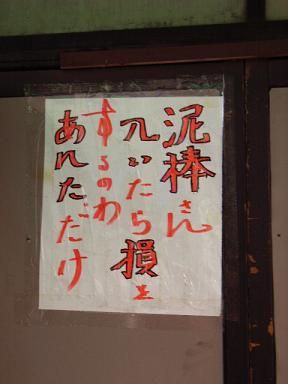 泥棒さん
入いたら損を
するのわ
あんただけ